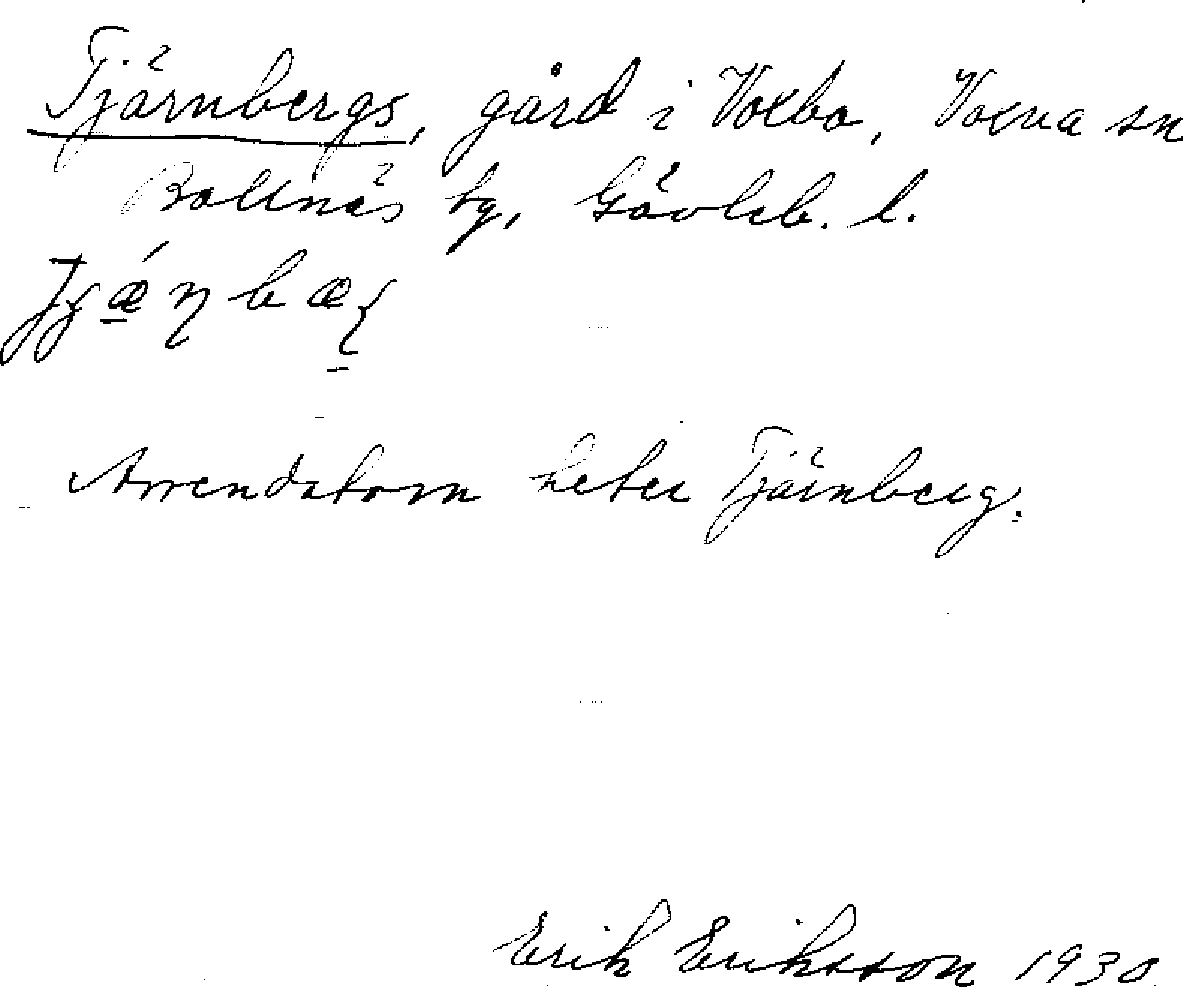 Tjärnbergs, gård i Voxbo, Voxna sn
Bollnäs tg, Gävleb. l.
Arrendatorn heter Tjärnberg.
Erik Eriksson 1930